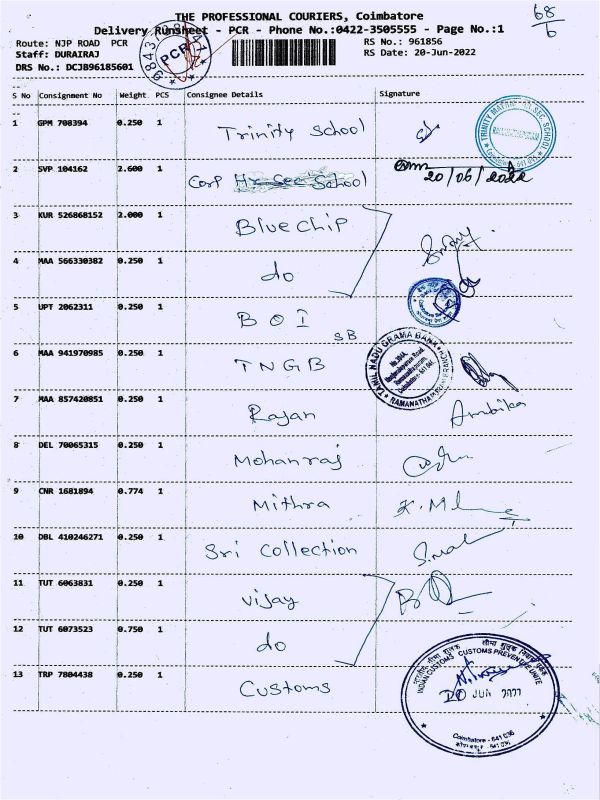 THE PROFESSIONAL COURIERS, Coimbatore
68/6
Delivery Runsheet - PCR - Phone No.:0422-3505555 - Page No.:1
Route: NJP ROAD PCR
RS No.: 961856
Staff: DURAIRAJ
RS Date: 20-Jun-2022
DRS No.: DCJB96185601
PCR
S No Consignment No Weight PCS Consignee Details Signature
1 GPM 708394 0.250 1 Trinity School
2 SVP 104162 2.600 1 Corp Hr Sec School 20/06/2022
3 KUR 526868152 2.000 1 Bluechip
4 MAA 566330382 0.250 1 do
5 UPT 2062311 0.250 1 BOI SB
6 MAA 941970985 0.250 1 TNGB
TAMIL NADU GRAMA BANK
7 MAA 857420851 0.250 1 Rajan Ambika
8 DEL 70065315 0.250 1 Mohanraj
9 CNR 1681894 0.774 1 Mithra
10 DBL 410246271 0.250 1 Sri Collection
11 TUT 6063831 0.250 1 Vijay
12 TUT 6073523 0.750 1 do
13 TRP 7804438 0.250 1 Customs
INDIAN CUSTOMS CUSTOMS PREVENTIVE UNIT
20 JUN 2022
Coimbatore